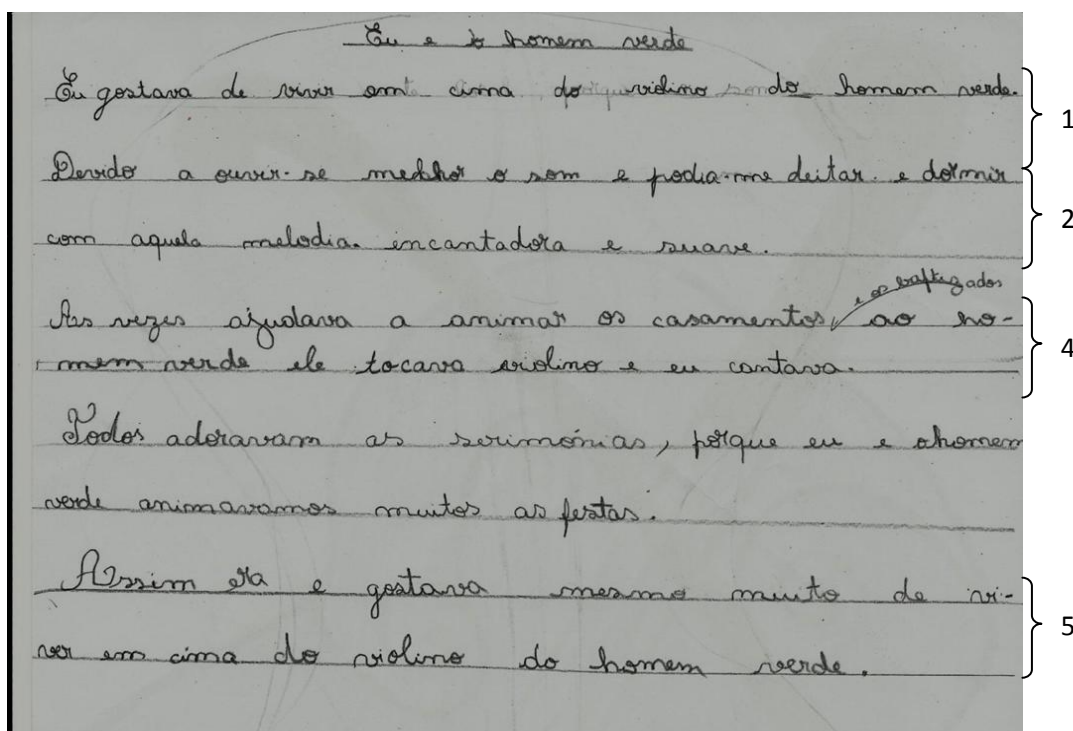 Eu e o homem verde
Eu gostava de viver em cima do violino do homem verde. 1
Devido a ouvir-se melhor o som e podia-me deitar e dormir
com aquela melodia encantadora e suave. 2
e os baptizados
As vezes ajudava a animar os casamentos, ao ho-
mem verde ele tocava violino e eu cantava. 4
Todos adoravam as serimónias, porque eu e o homem
verde animavamos muitos as festas.
Assim era e gostava mesmo muito de vi-
ver em cima do violino do homem verde. 5